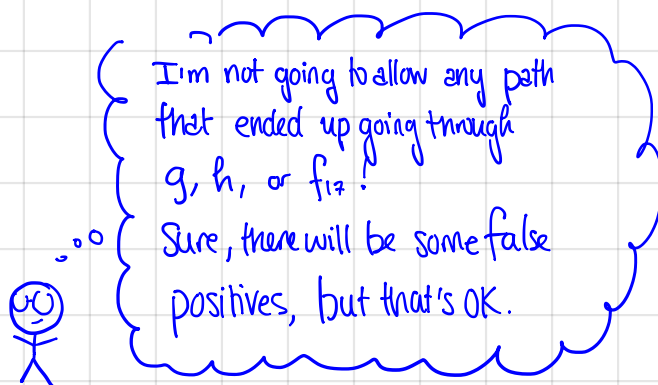 I'm not going to allow any path
that ended up going through
g, h, or f₁₇!
Sure, there will be some false
positives, but that's OK.